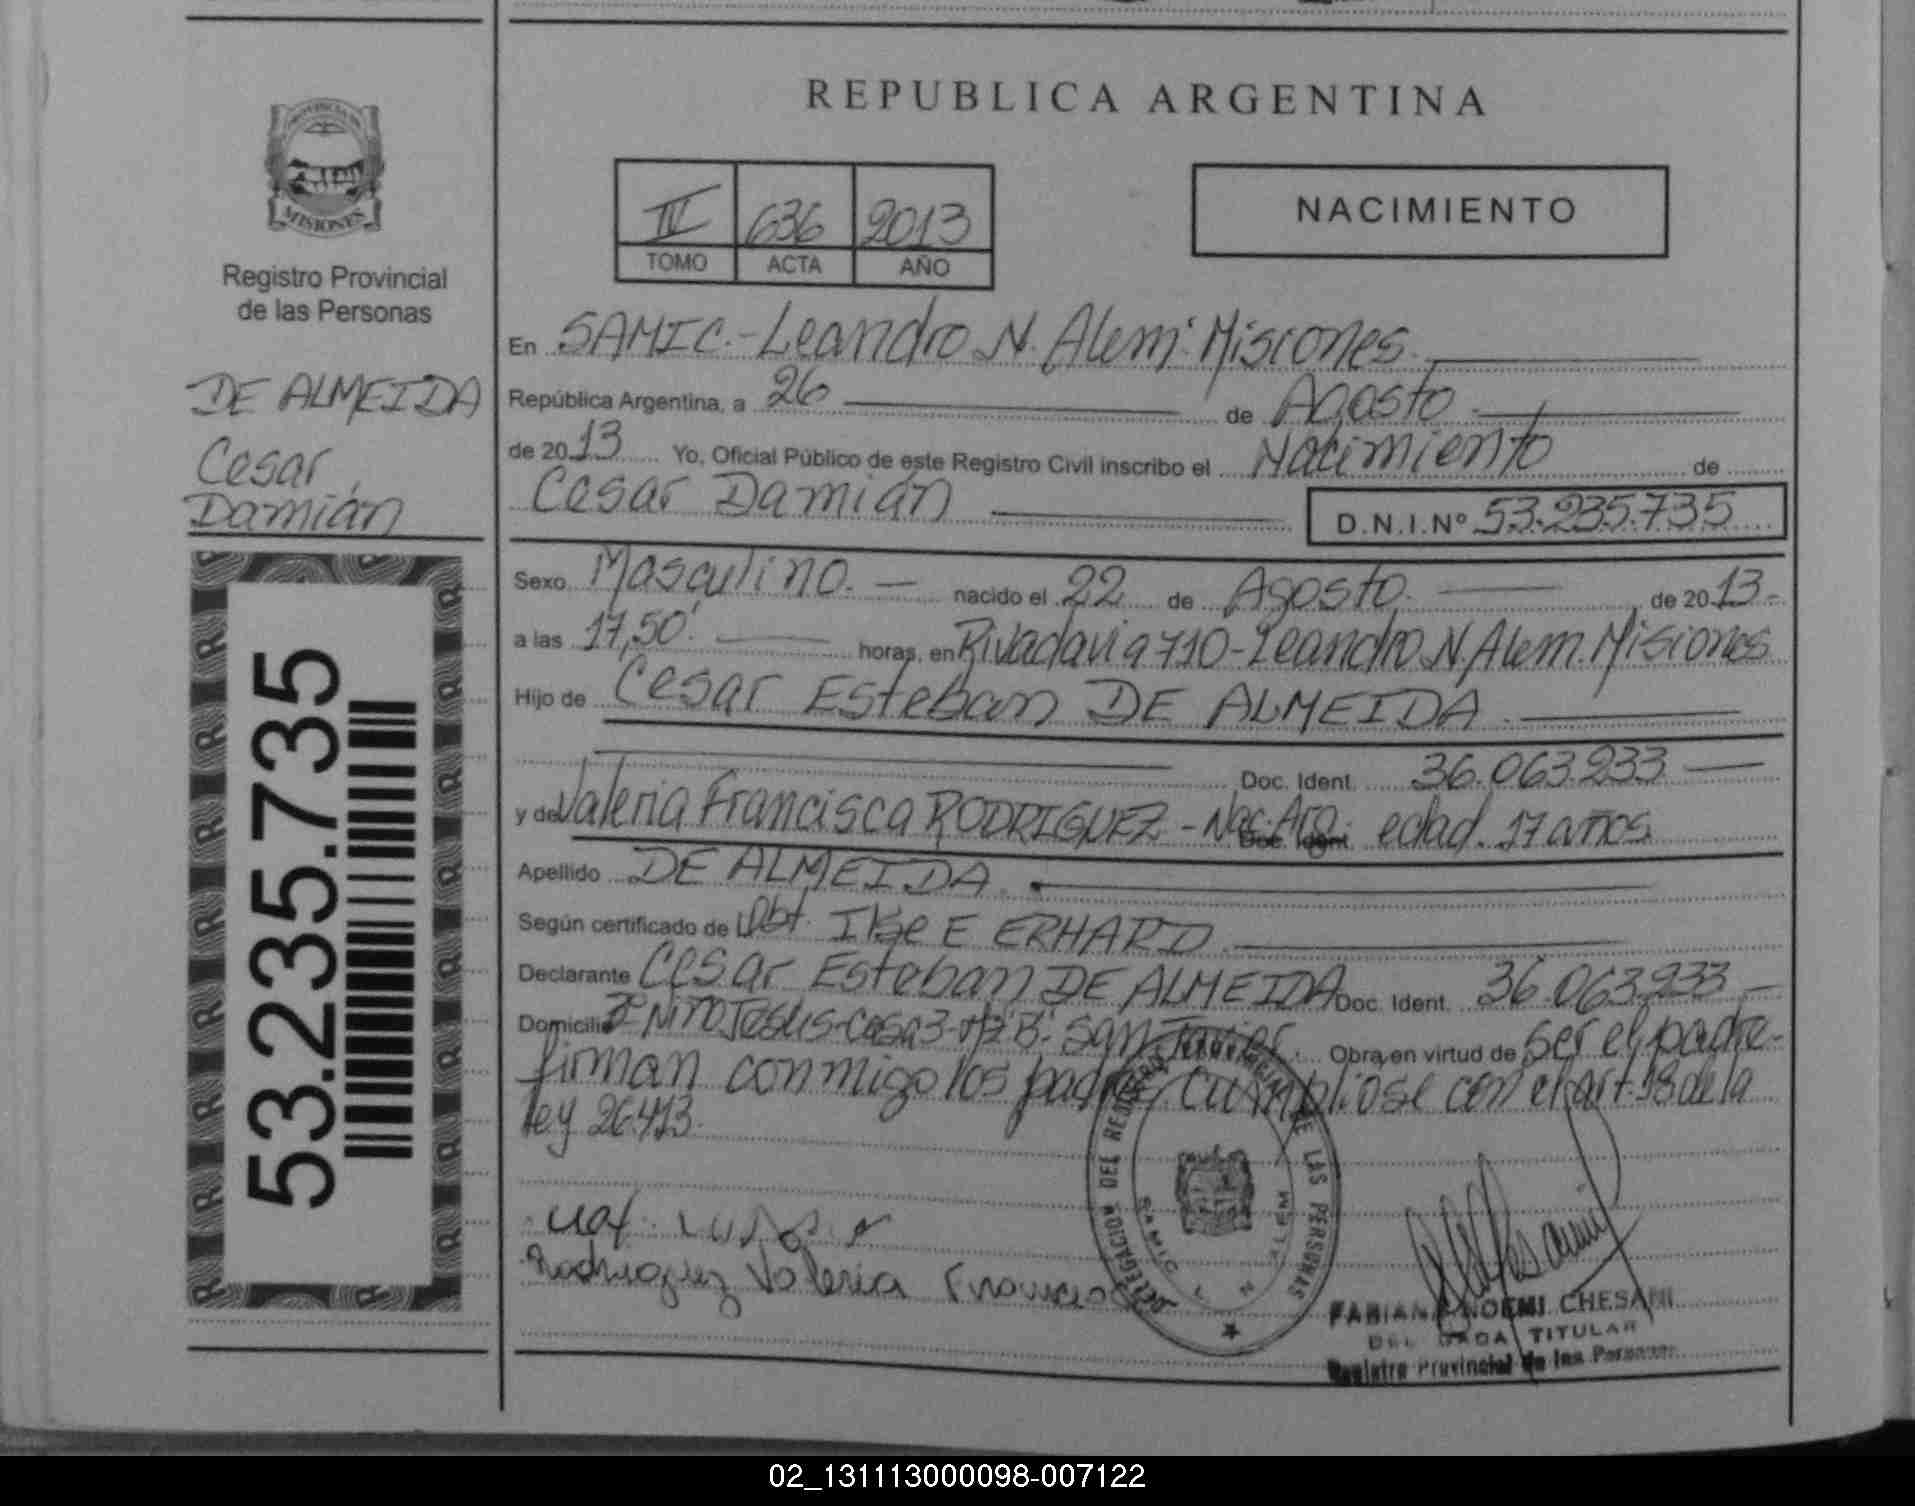 REPUBLICA ARGENTINA
PROVINCIA DE
MISIONES
Registro Provincial
de las Personas
DE ALMEIDA
Cesar
Damián
53.235.735
IV 636 2013
TOMO ACTA AÑO
NACIMIENTO
En SAMIC.-Leandro N. Alem. Misiones.
República Argentina, a 26 de Agosto
de 2013 Yo, Oficial Público de este Registro Civil inscribo el Nacimiento de
Cesar Damián D.N.I.Nº 53.235.735
Sexo Masculino. nacido el 22 de Agosto. de 2013-
a las 17,50'. horas, en Rivadavia 710-Leandro N. Alem. Misiones
Hijo de Cesar Esteban DE ALMEIDA
Doc. Ident. 36.063.233
y de Valeria Francisca RODRIGUEZ - Nac. Arg. Doc. Ident. edad. 17 años.
Apellido DE ALMEIDA.
Según certificado de Obt. Ilse E ERHARD
Declarante Cesar Esteban DE ALMEIDA Doc. Ident. 36.063.233
Domicilio Bº Niño Jesus-Casa 3-Mz"B". San Javier. Obra en virtud de ser el padre-
firman conmigo los padres cumpliose con el art. 18 de la
ley 26.413.
Rodriguez Valeria Francisca
DELEGACION DEL REGISTRO PROVINCIAL DE LAS PERSONAS
SAMIC L N ALEM
FABIANA NOEMI CHESANI
DELEGADA TITULAR
Registro Provincial de las Personas
02_131113000098-007122